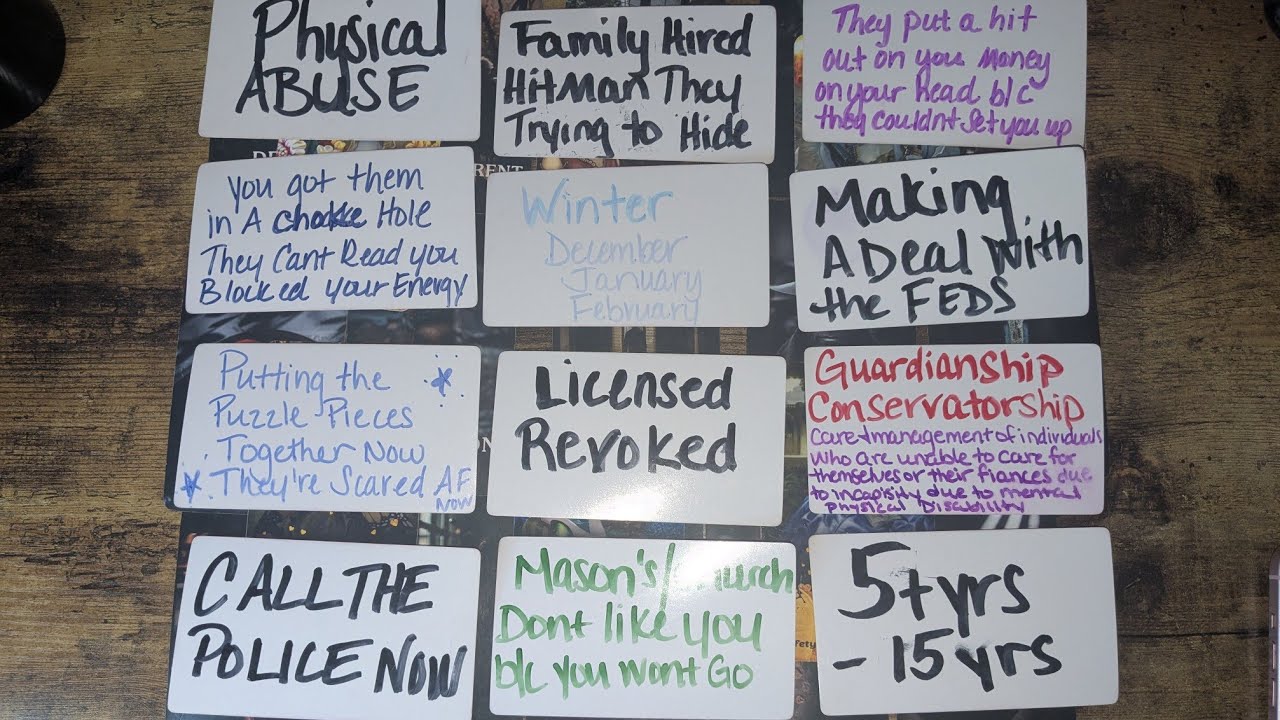 Physical
ABUSE
Family Hired
HitMan They
Trying to Hide
They put a hit
out on you Money
on your head b/c
they couldnt set you up
RENT
You got them
in A chokke Hole
They Cant Read you
Blocked your Energy
Winter
December
January
February
Making
A Deal with
the FEDS
Putting the
Puzzle Pieces
Together Now
They're Scared AF
NOW
Licensed
Revoked
Guardianship
Conservatorship
Care + management of individuals
Who are unable to care for
themselves or their fiances due
to incapisity due to mental
Physical Disability
CALL THE
POLICE NOW
Mason's/church
Dont like you
b/c you Wont Go
5+yrs
- 15yrs